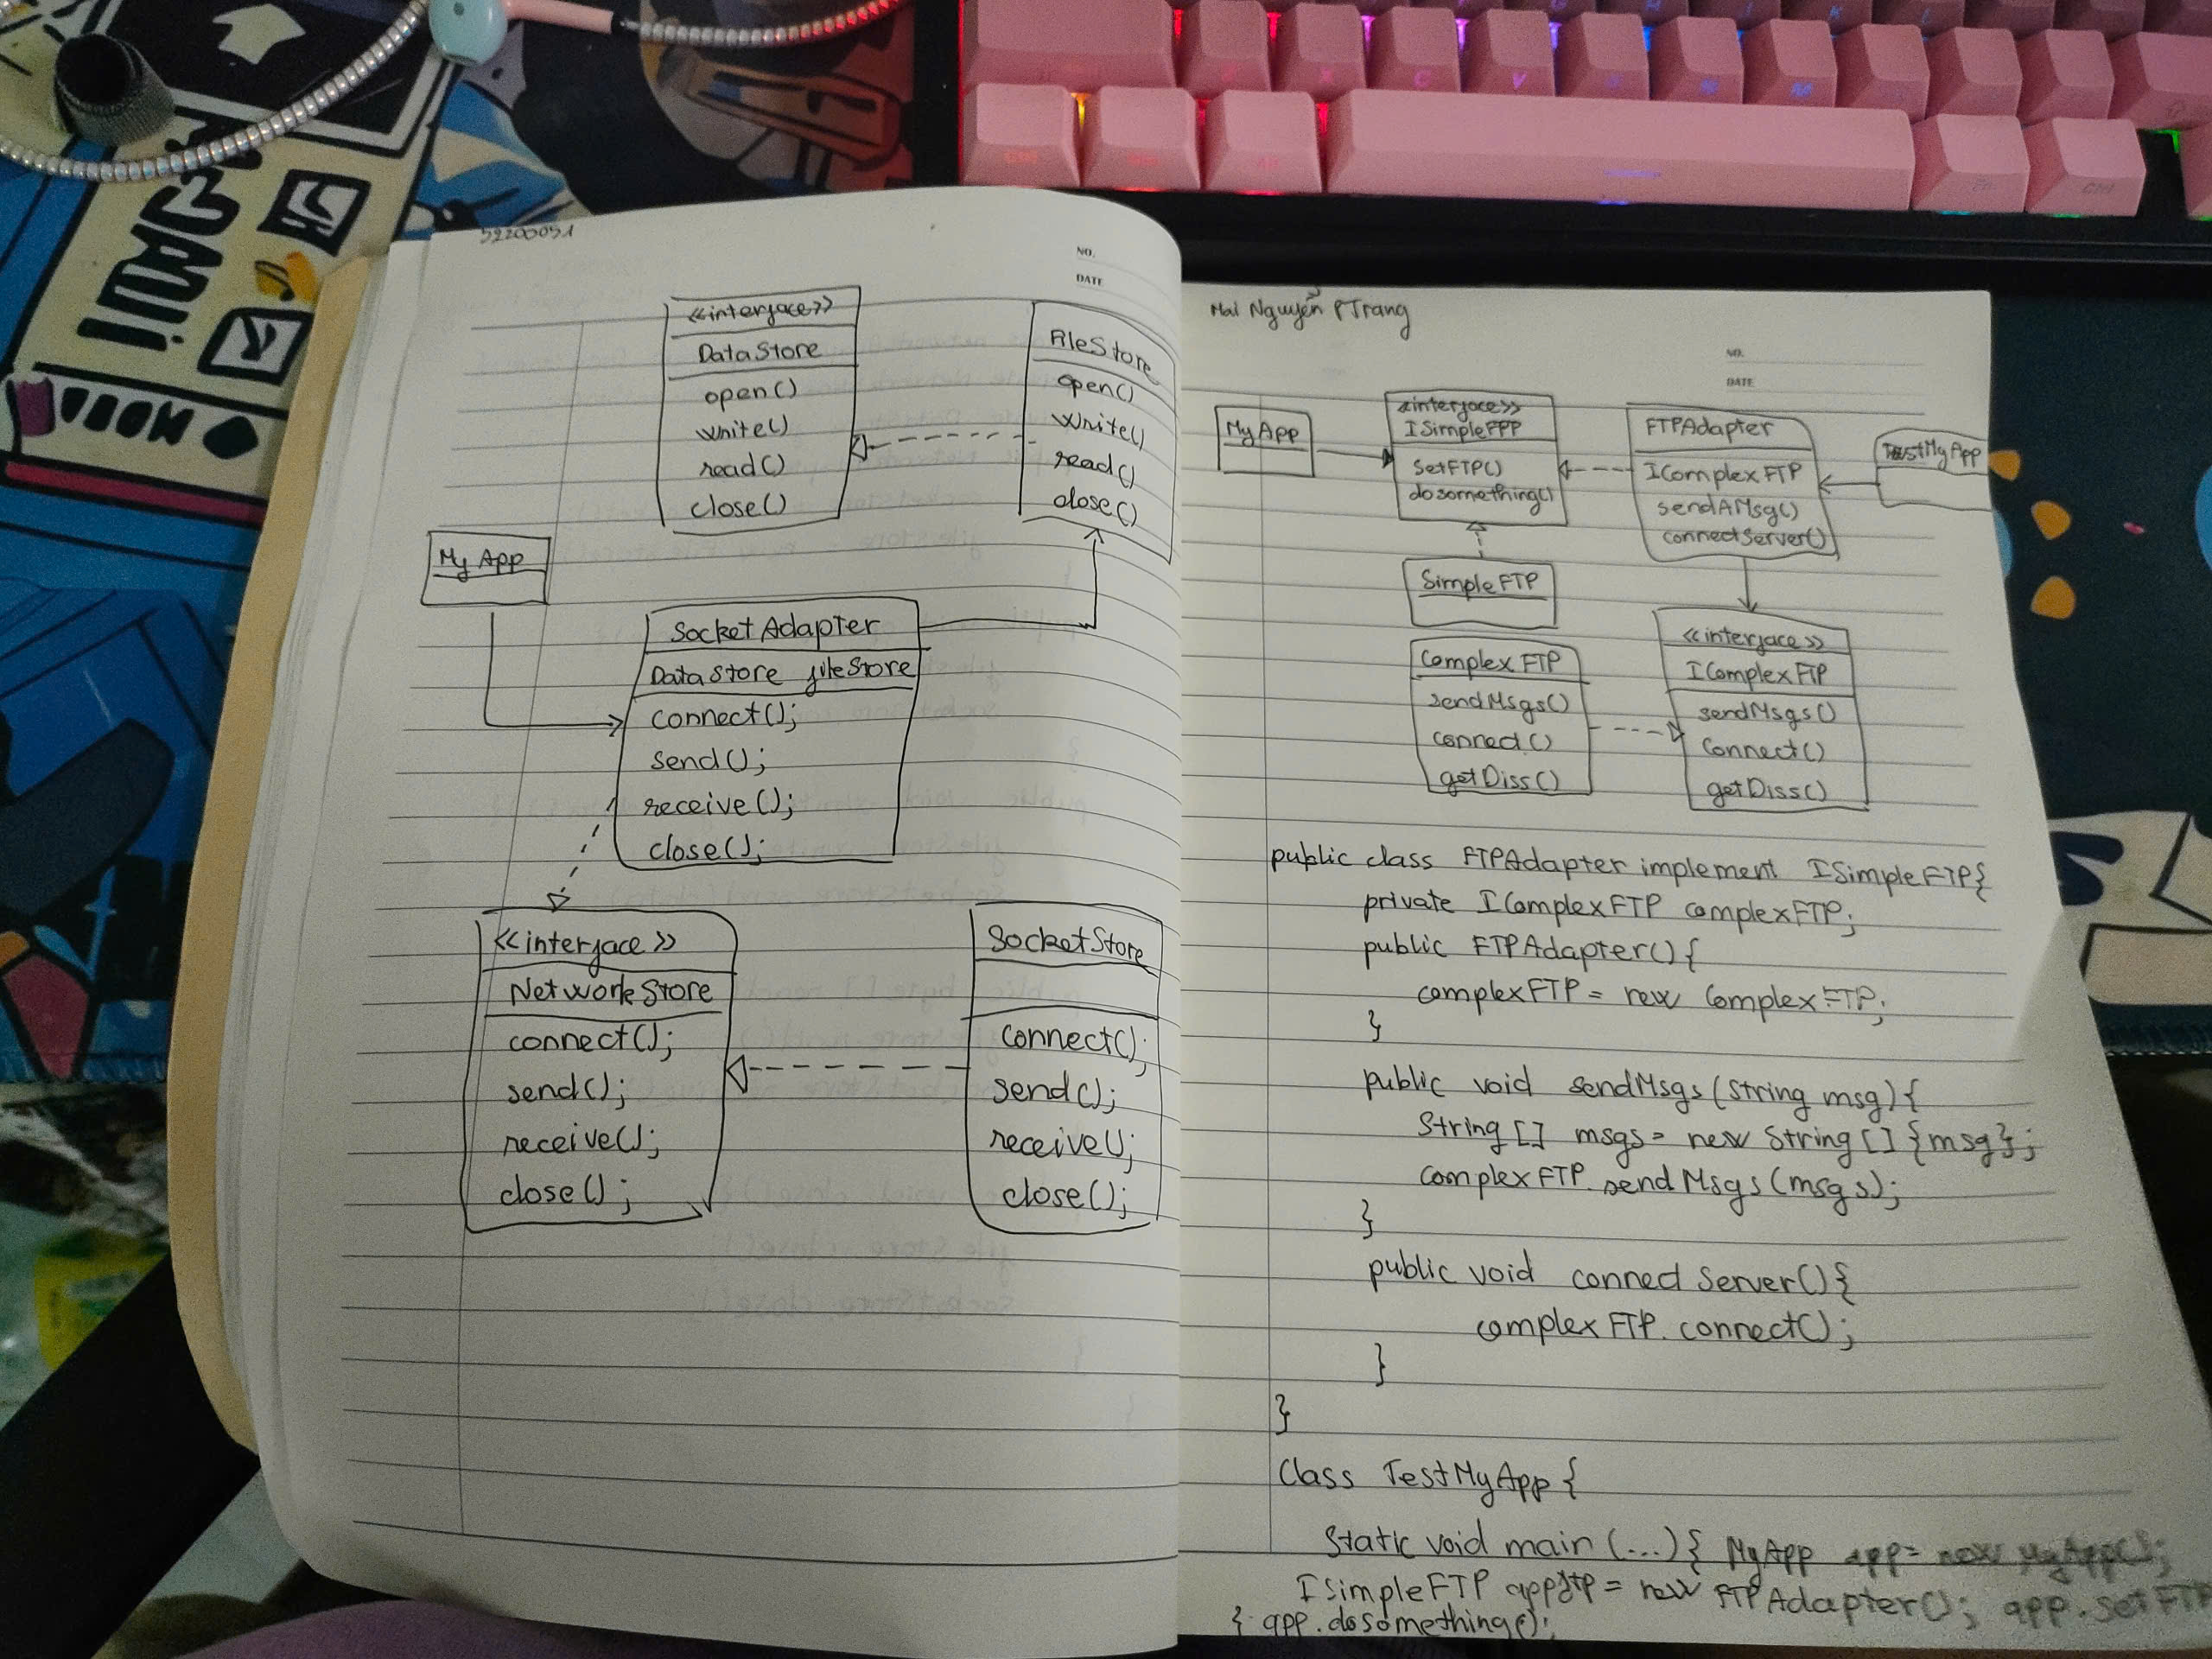 52200051
NO.
DATE
<<interface>>
DataStore
open()
write()
read()
close()
FileStore
open()
write()
read()
close()
My App
Socket Adapter
DataStore fileStore
connect();
send();
receive();
close();
<<interface>>
NetworkStore
connect();
send();
receive();
close();
SocketStore
connect();
send();
receive();
close();
Mai Nguyễn P Trang
NO.
DATE
MyApp
<<interface>>
ISimpleFPP
SetFTP()
dosomething()
FTPAdapter
IComplexFTP
sendAMsg()
connectServer()
TestMyApp
SimpleFTP
Complex FTP
sendMsgs()
connect()
getDiss()
<<interface>>
IComplexFTP
sendMsgs()
Connect()
getDiss()
public class FTPAdapter implement ISimpleFTP{
private IComplexFTP complexFTP;
public FTPAdapter(){
complexFTP = new ComplexFTP;
}
public void sendMsgs(String msg){
String[] msgs = new String[]{msg};
complexFTP.sendMsgs(msgs);
}
public void connect Server(){
complexFTP.connect();
}
}
Class TestMyApp {
Static void main (...) { MyApp app = new MyApp();
ISimpleFTP appftp = new FTPAdapter(); app.setFTP
} app.dosomething();